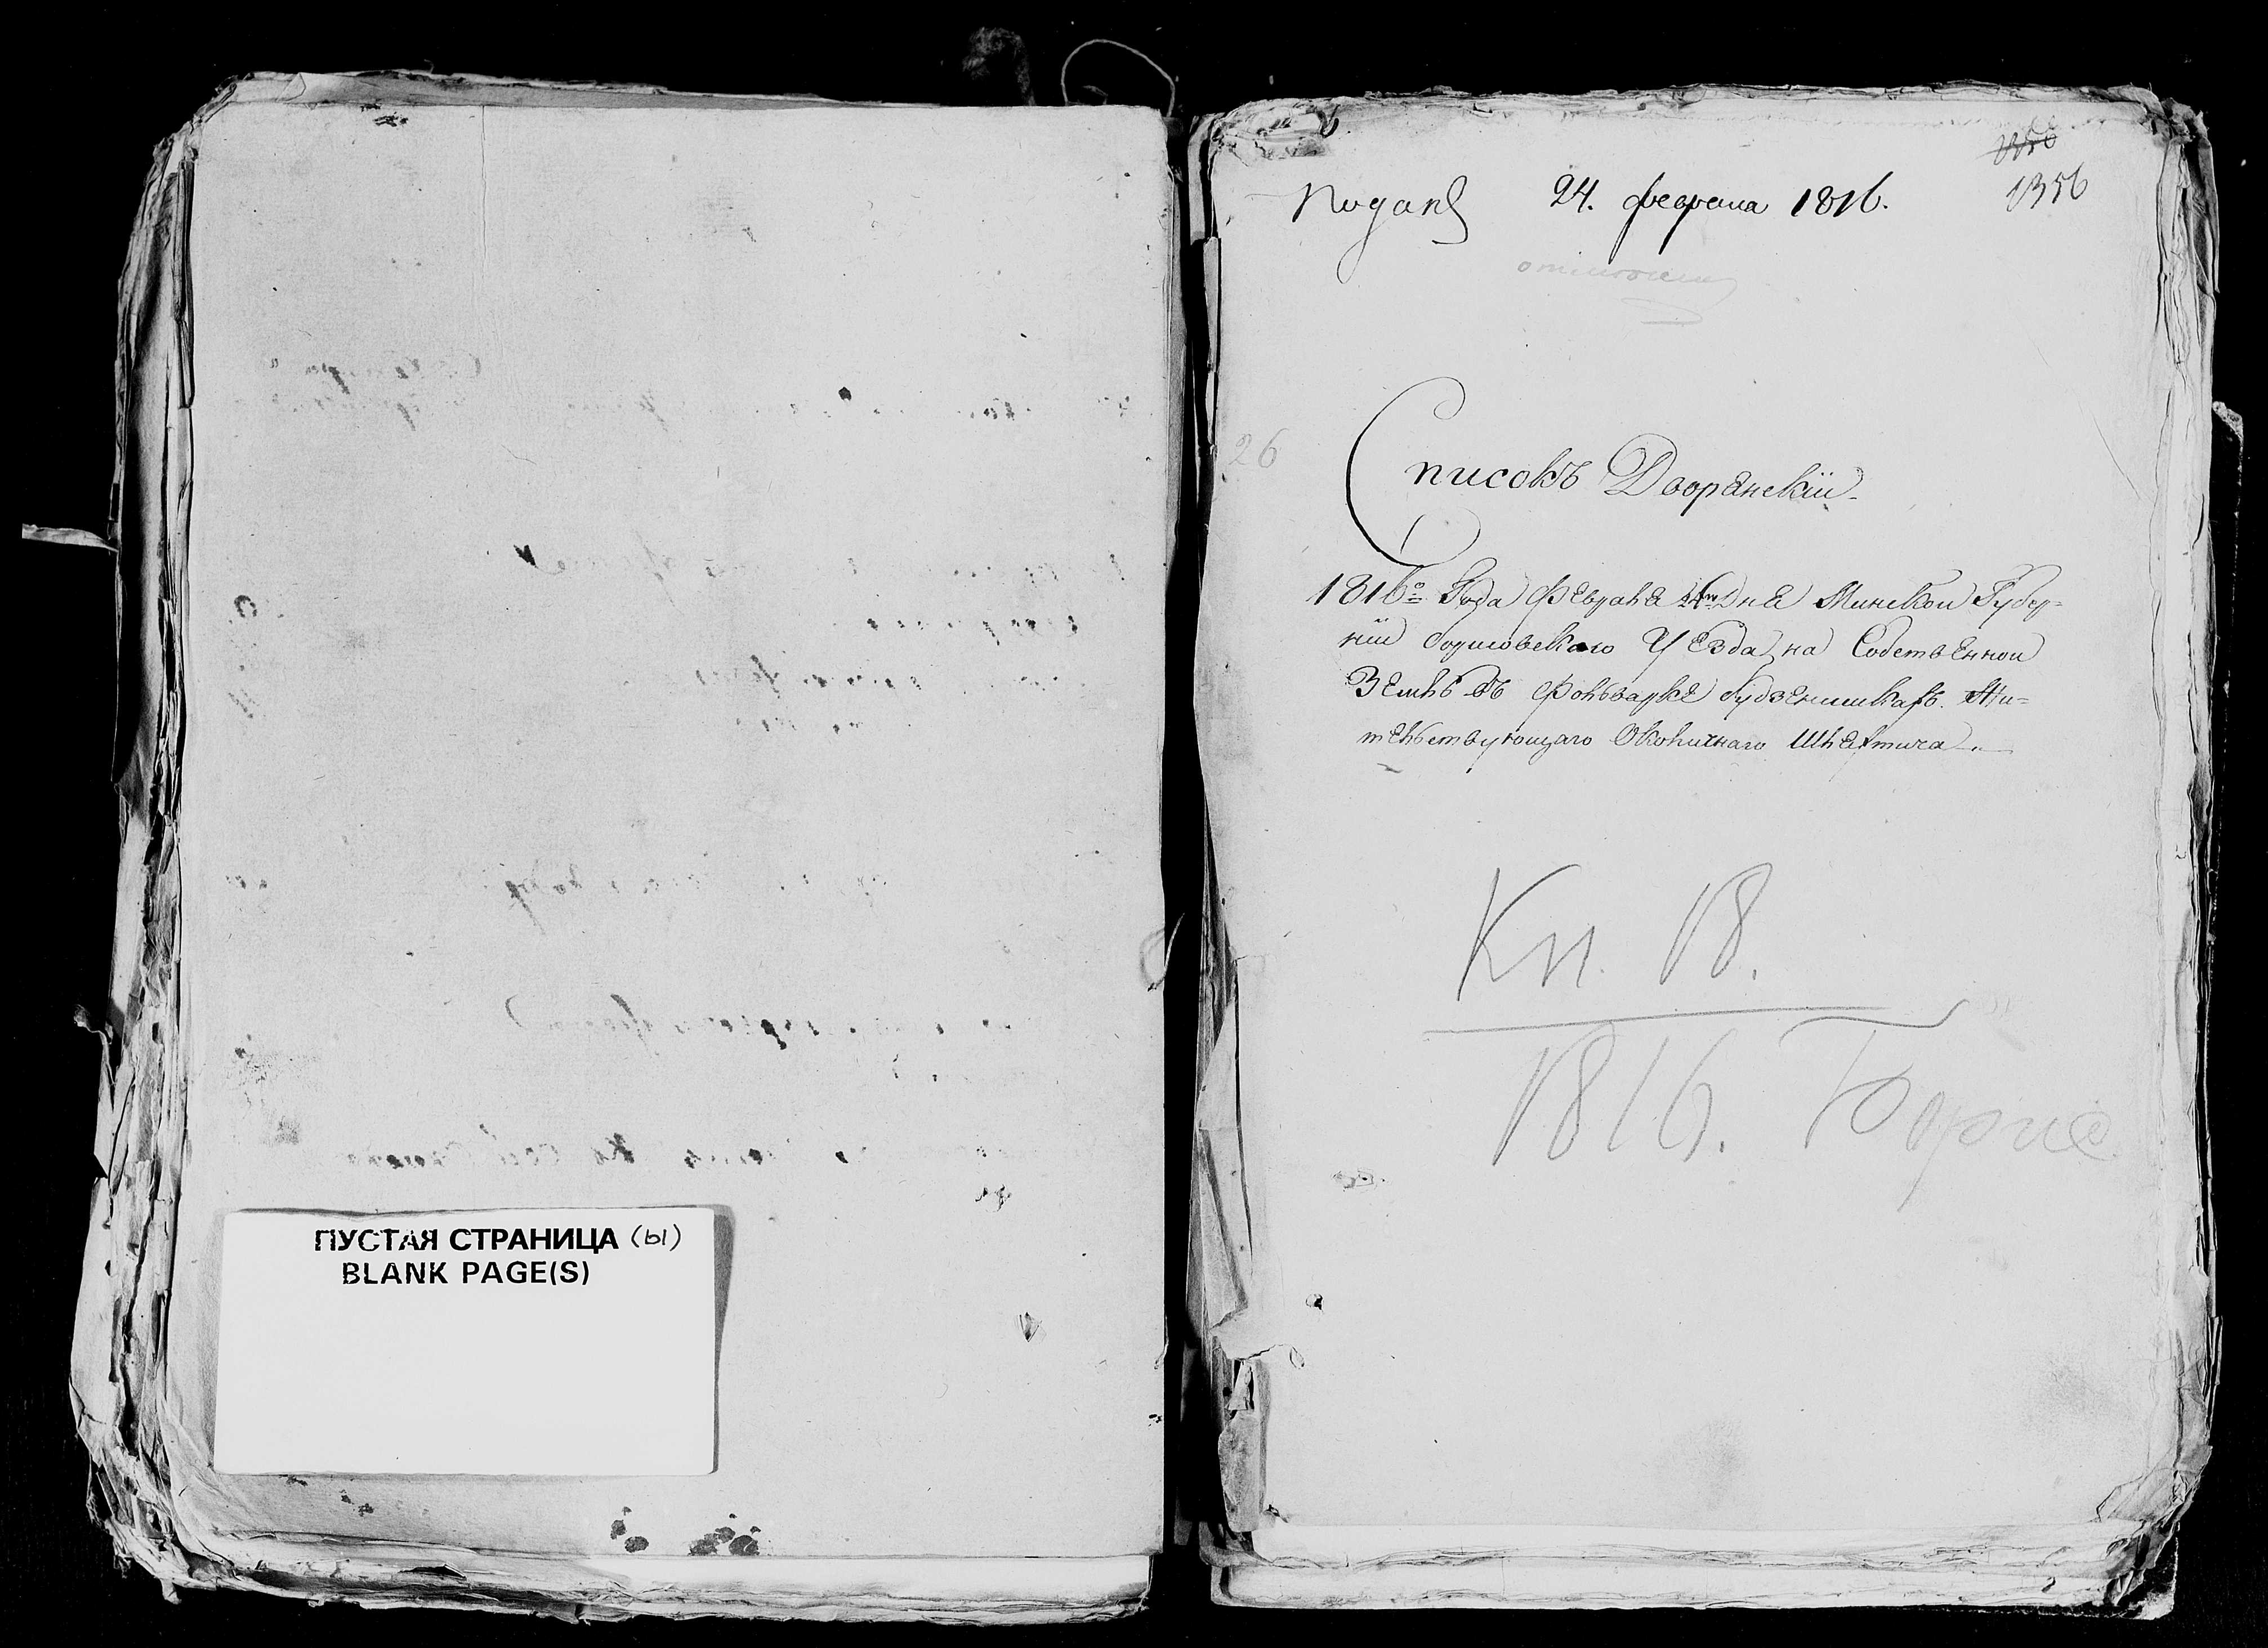 ПУСТАЯ СТРАНИЦА (ы)
BLANK PAGE(S)
1356
Поданъ 24. февраля 1816.
1356
26
Списокъ Дворянскій
1816го Года февраля 24го Дня Минской Губер=
ніи Борисовского Уезда на Собственной
Земль въ фольварке Жи=
тельствующаго Околичнаго
Кн. 18.
1816. Борис